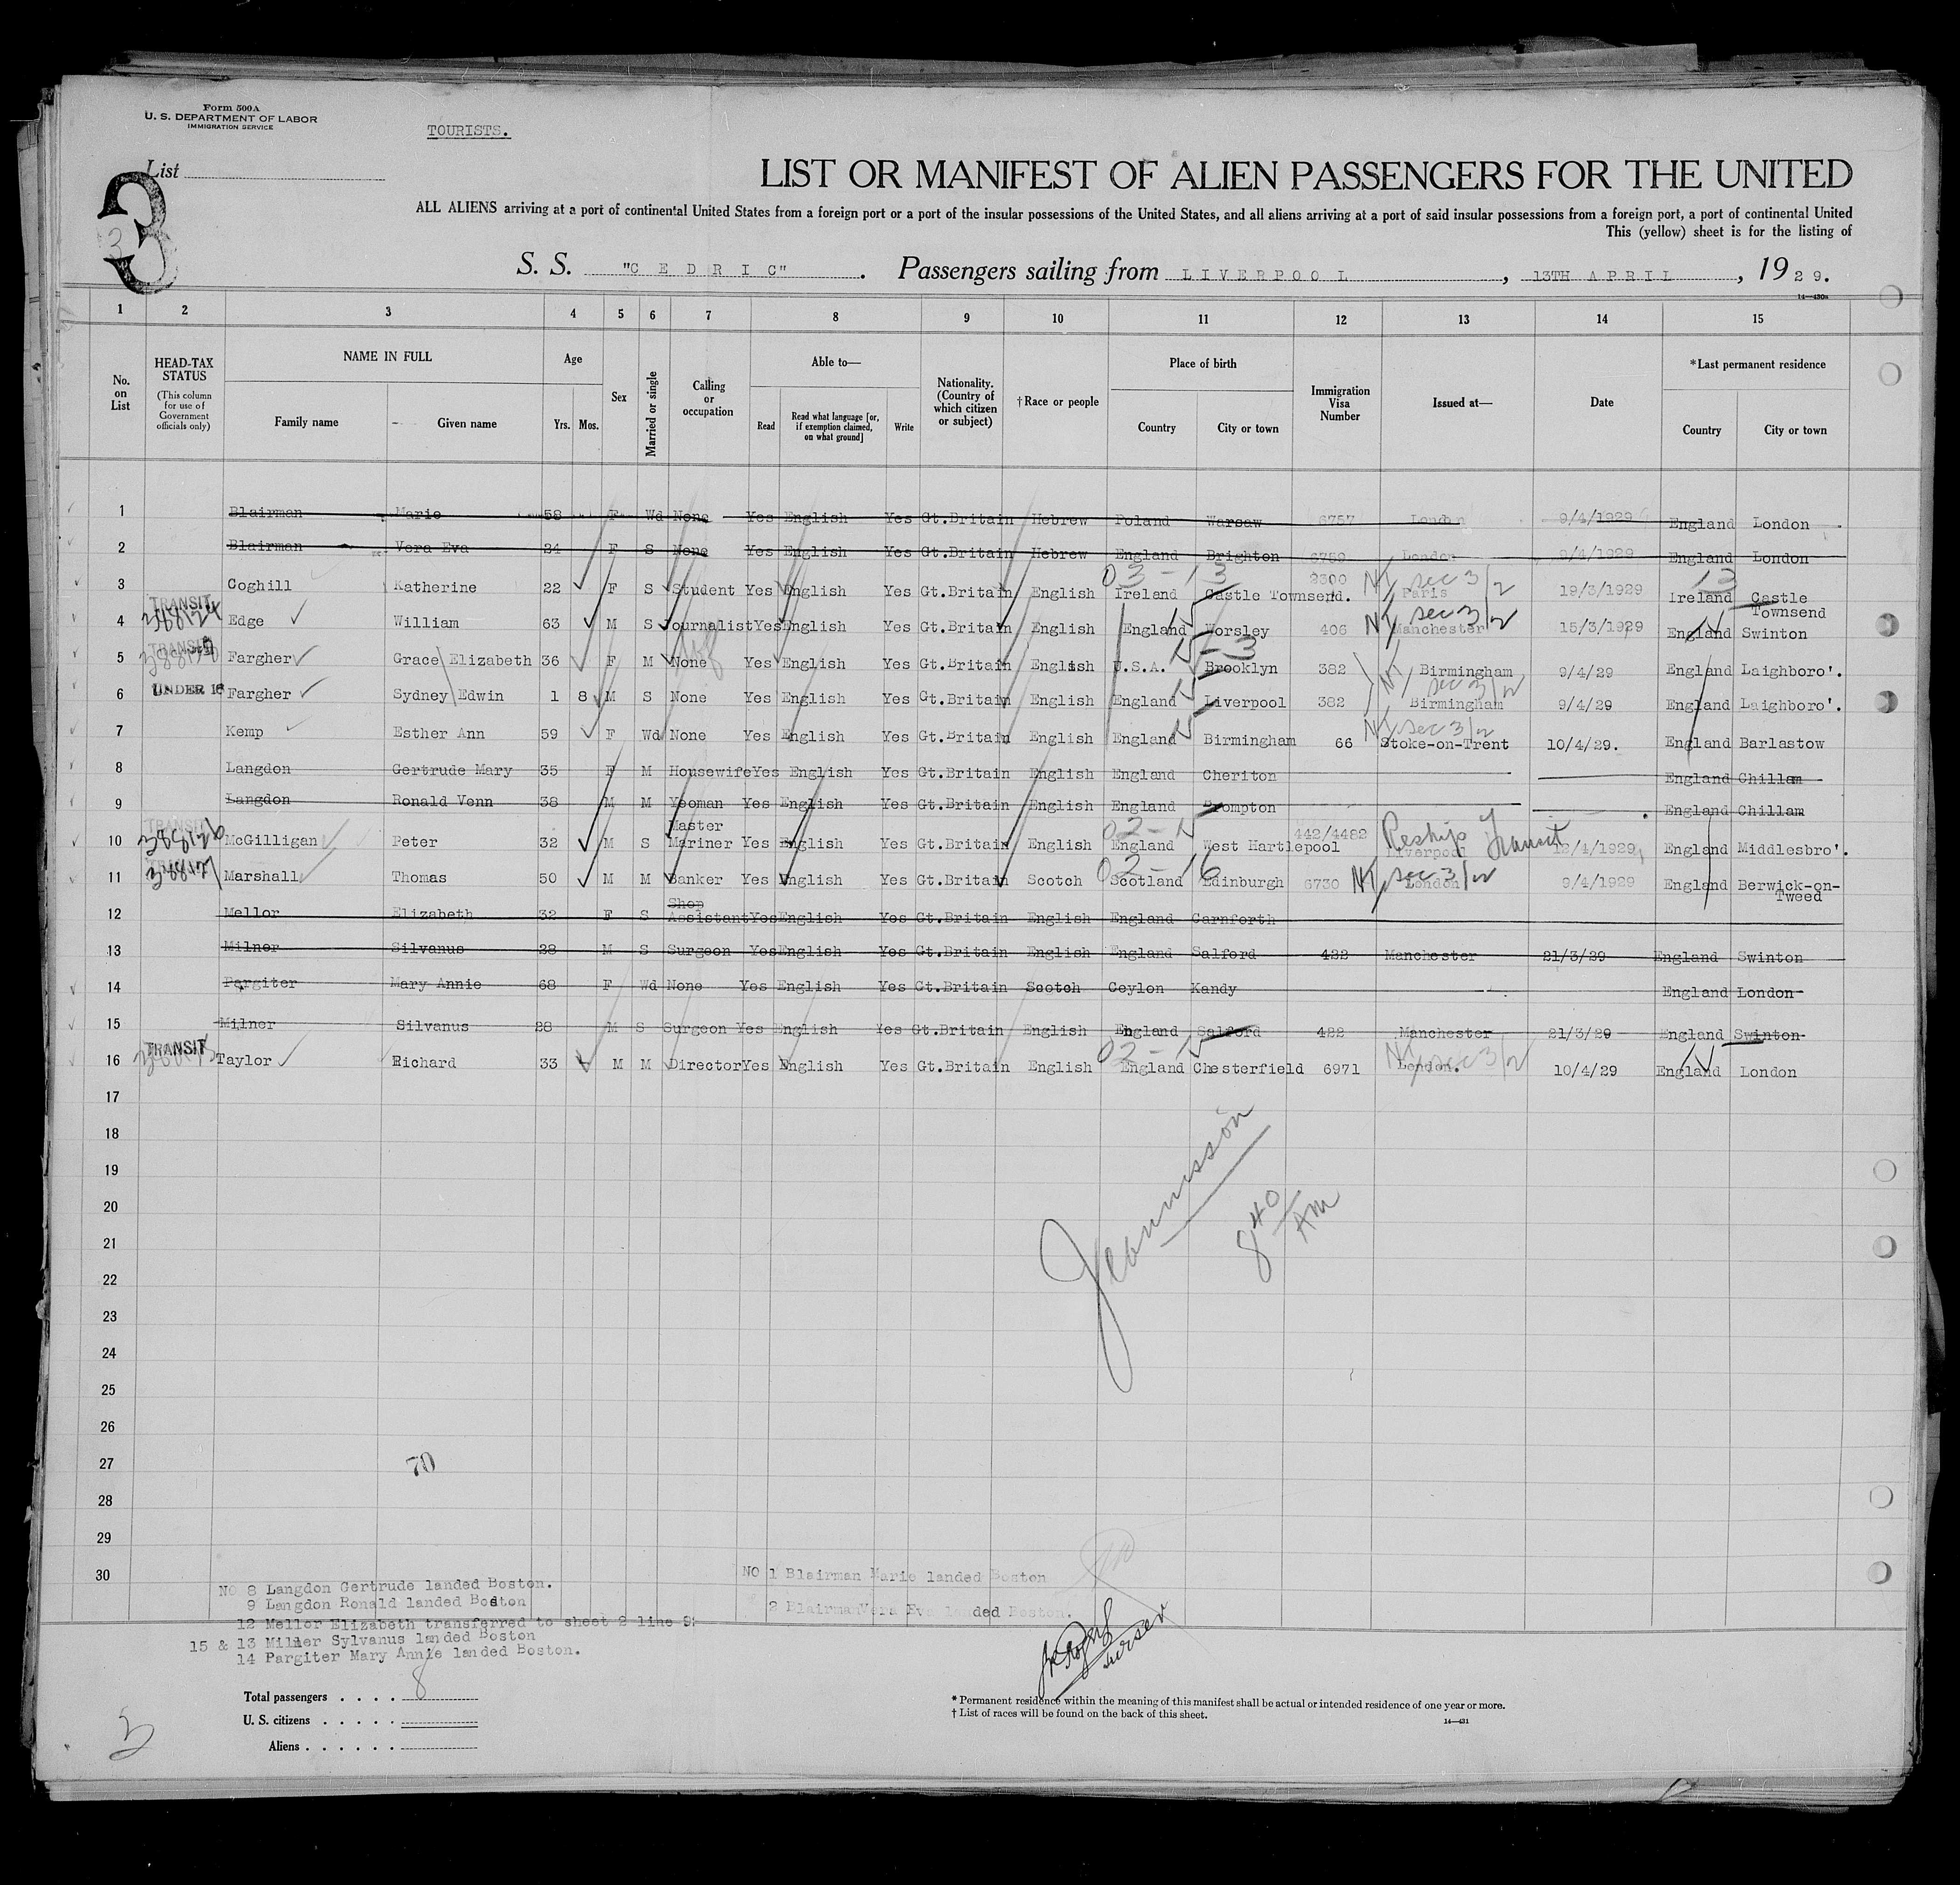 Form 500A
U. S. DEPARTMENT OF LABOR
IMMIGRATION SERVICE
TOURISTS.
List
3
LIST OR MANIFEST OF ALIEN PASSENGERS FOR THE UNITED
ALL ALIENS arriving at a port of continental United States from a foreign port or a port of the insular possessions of the United States, and all aliens arriving at a port of said insular possessions from a foreign port, a port of continental United
This (yellow) sheet is for the listing of
S. S. "C E D R I C". Passengers sailing from L I V E R P O O L, 13TH A P R I L, 1929.
14—430a
1 2 3 4 5 6 7 8 9 10 11 12 13 14 15
No. on List
HEAD-TAX STATUS
(This column for use of Government officials only)
NAME IN FULL
Family name Given name
Age
Yrs. Mos.
Sex
Married or single
Calling or occupation
Able to—
Read Read what language [or, if exemption claimed, on what ground] Write
Nationality. (Country of which citizen or subject)
†Race or people
Place of birth
Country City or town
Immigration Visa Number
Issued at—
Date
*Last permanent residence
Country City or town
1 Blairman Marie 58 F Wd None Yes English Yes Gt.Britain Hebrew Poland Warsaw 6757 London 9/4/1929 England London
2 Blairman Vera Eva 24 F S None Yes English Yes Gt.Britain Hebrew England Brighton 6759 London 9/4/1929 England London
03-13 2300 NY sec 3/2 13
3 Coghill Katherine 22 F S Student Yes English Yes Gt.Britain English Ireland Castle Townsend. Paris 19/3/1929 Ireland Castle Townsend
TRANSIT
388124
4 Edge William 63 M S Journalist Yes English Yes Gt.Britain English England Worsley 406 NY sec 3/2 Manchester 15/3/1929 England Swinton
TRANSIT
5 Fargher Grace Elizabeth 36 F M None Yes English Yes Gt.Britain English U.S.A. Brooklyn 382 Birmingham 9/4/29 England Laighboro'.
UNDER 16
6 Fargher Sydney Edwin 1 8 M S None Yes English Yes Gt.Britain English England Liverpool 382 NY sec 3/2 Birmingham 9/4/29 England Laighboro'.
7 Kemp Esther Ann 59 F Wd None Yes English Yes Gt.Britain English England Birmingham 66 NY sec 3/2 Stoke-on-Trent 10/4/29. England Barlastow
8 Langdon Gertrude Mary 35 F M Housewife Yes English Yes Gt.Britain English England Cheriton England Chillam
9 Langdon Ronald Venn 38 M M Yeoman Yes English Yes Gt.Britain English England Brompton England Chillam
TRANSIT
388126
10 McGilligan Peter 32 M S Master Mariner Yes English Yes Gt.Britain English England West Hartlepool 442/4482 Liverpool Reship Transit 12/4/1929 England Middlesbro'.
TRANSIT
388127
02-16
11 Marshall Thomas 50 M M Banker Yes English Yes Gt.Britain Scotch Scotland Edinburgh 6730 NY sec 3/2 London 9/4/1929 England Berwick-on-Tweed
12 Mellor Elizabeth 32 F S Shop Assistant Yes English Yes Gt.Britain English England Carnforth
13 Milner Silvanus 28 M S Surgeon Yes English Yes Gt.Britain English England Salford 422 Manchester 21/3/29 England Swinton
14 Pargiter Mary Annie 68 F Wd None Yes English Yes Gt.Britain Scotch Ceylon Kandy England London
15 Milner Silvanus 28 M S Surgeon Yes English Yes Gt.Britain English England Salford 422 Manchester 21/3/29 England Swinton
TRANSIT
16 Taylor Richard 33 M M Director Yes English Yes Gt.Britain English England Chesterfield 6971 NY sec 3/2 London. 10/4/29 England London
17
18
19
20
8 40 AM
21
22
23
24
25
26
27
70
28
29
30
NO 8 Langdon Gertrude landed Boston.
9 Langdon Ronald landed Boston
12 Mellor Elizabeth transferred to sheet 2 line 9.
15 & 13 Milner Sylvanus landed Boston
14 Pargiter Mary Annie landed Boston.
NO 1 Blairman Marie landed Boston
2 Blairman Vera Eva landed Boston.
Purser
Total passengers . . . . 8
U. S. citizens . . . . .
Aliens . . . . . .
* Permanent residence within the meaning of this manifest shall be actual or intended residence of one year or more.
† List of races will be found on the back of this sheet.
14—431